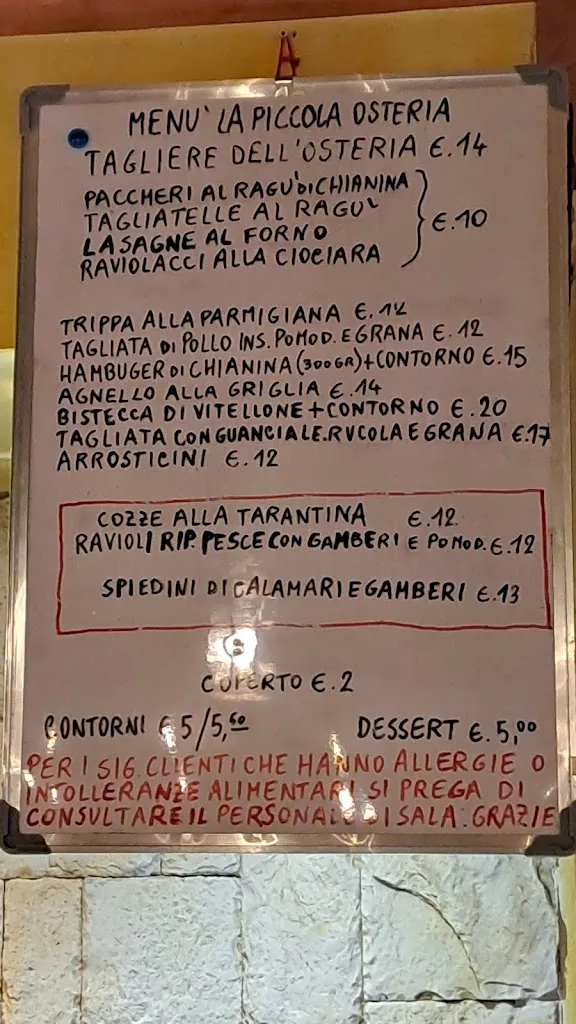 MENU' LA PICCOLA OSTERIA
TAGLIERE DELL'OSTERIA €.14
PACCHERI AL RAGU' DI CHIANINA
TAGLIATELLE AL RAGU'
LASAGNE AL FORNO
RAVIOLACCI ALLA CIOCIARA
€.10
TRIPPA ALLA PARMIGIANA €.12
TAGLIATA DI POLLO INS. POMOD. E GRANA €.12
HAMBUGER DI CHIANINA (300GR)+CONTORNO €.15
AGNELLO ALLA GRIGLIA €.14
BISTECCA DI VITELLONE+CONTORNO €.20
TAGLIATA CON GUANCIALE.RUCOLA E GRANA €.17
ARROSTICINI €.12
COZZE ALLA TARANTINA €.12
RAVIOLI RIP. PESCE CON GAMBERI E POMOD. €.12
SPIEDINI DI CALAMARI E GAMBERI €.13
COPERTO €.2
CONTORNI € 5/5,50
DESSERT €.5,00
PER I SIG. CLIENTI CHE HANNO ALLERGIE O
INTOLLERANZE ALIMENTARI SI PREGA DI
CONSULTARE IL PERSONALE DI SALA. GRAZIE